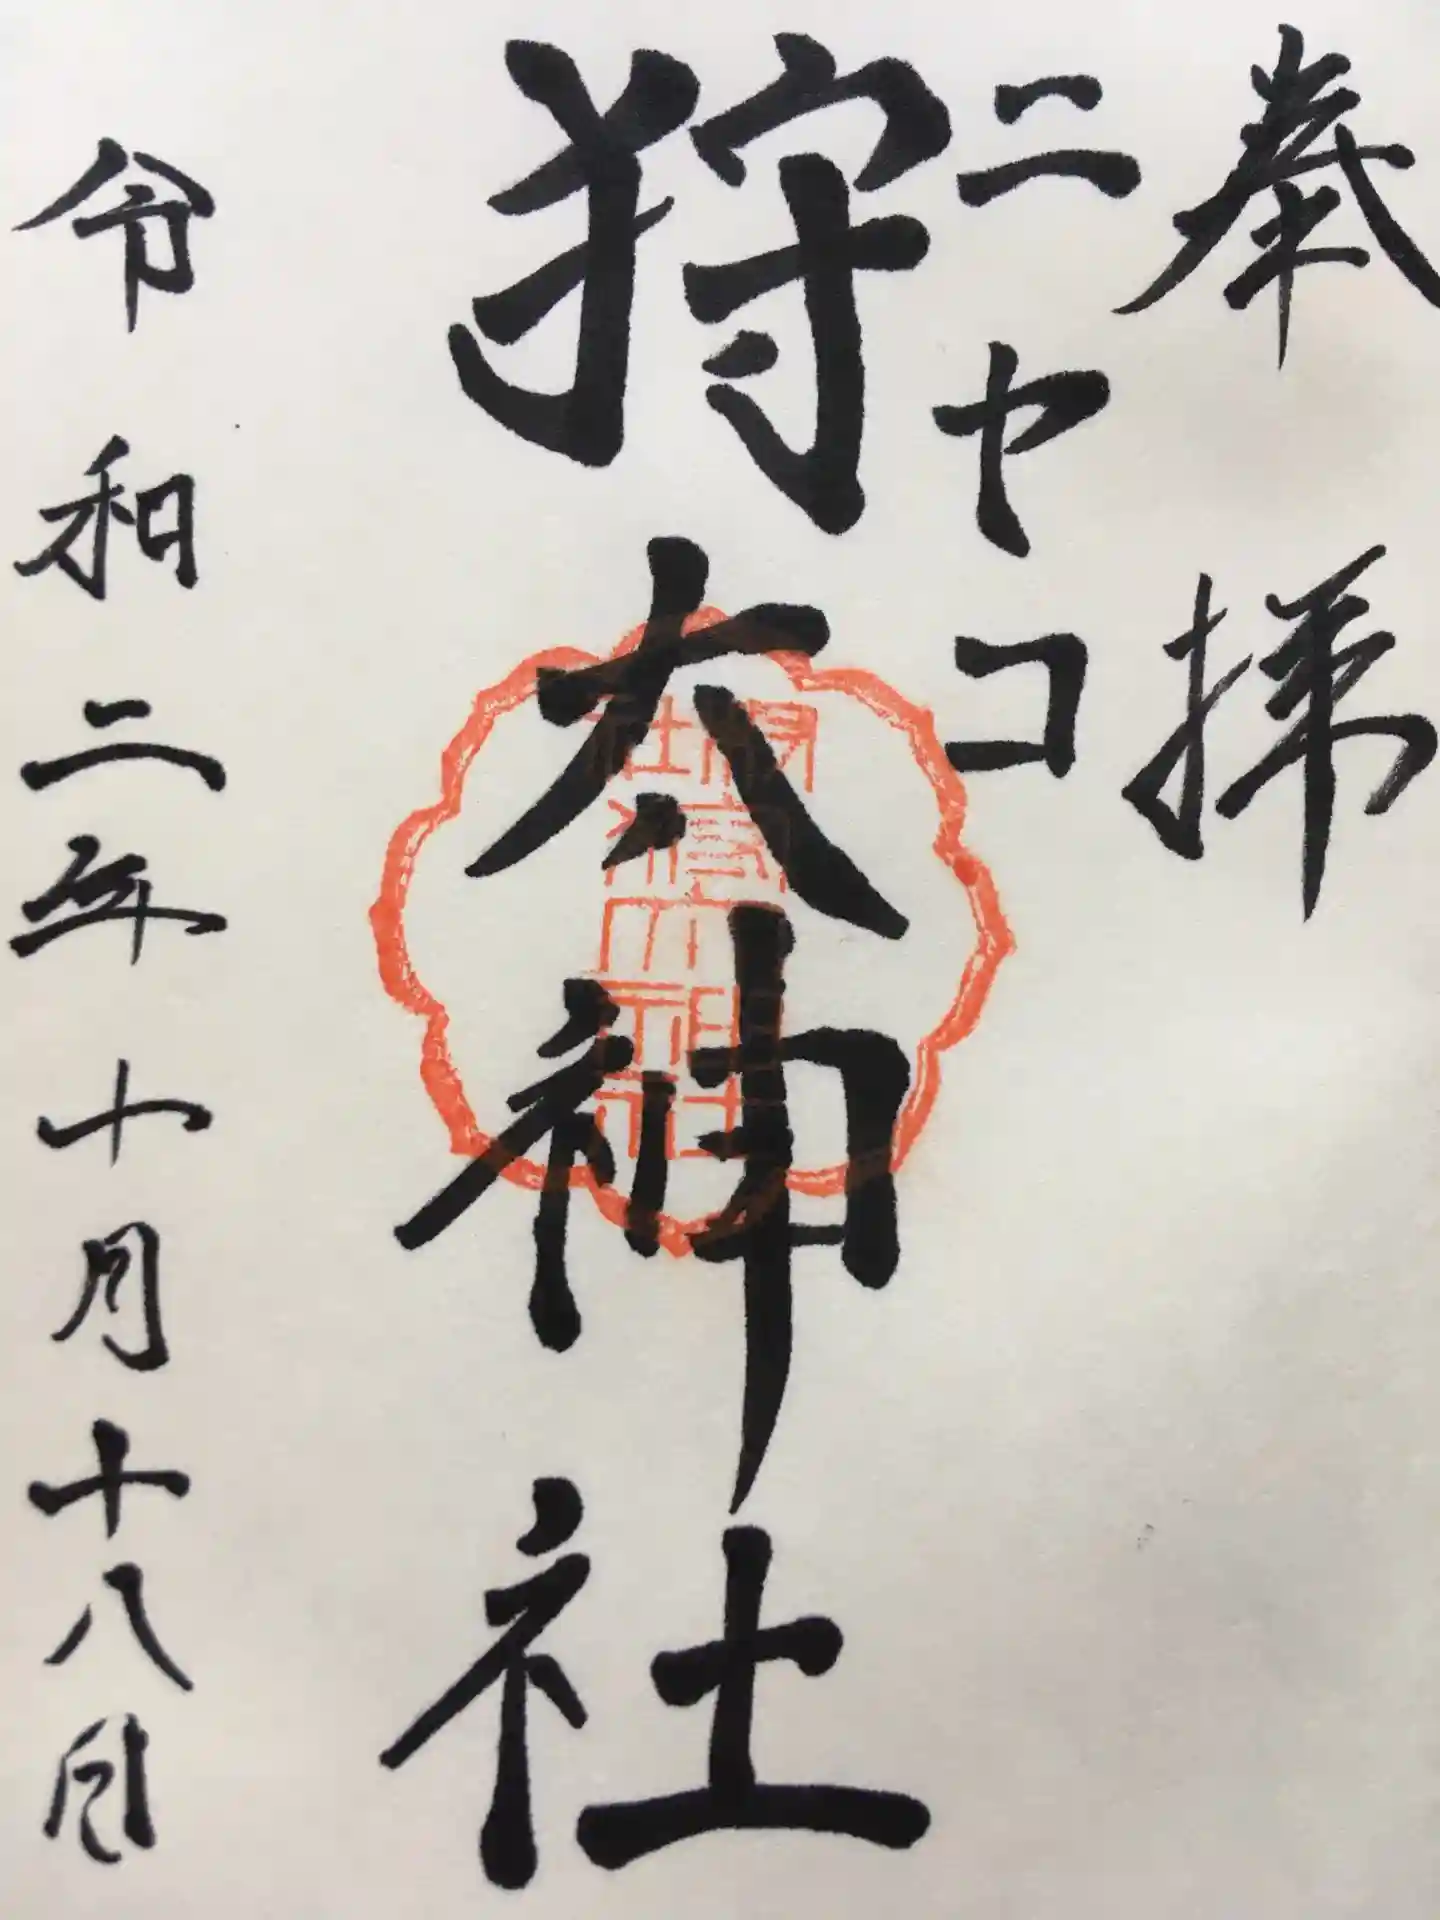 奉拝
ニヤコ
狩太神社
令和二年十月十八日